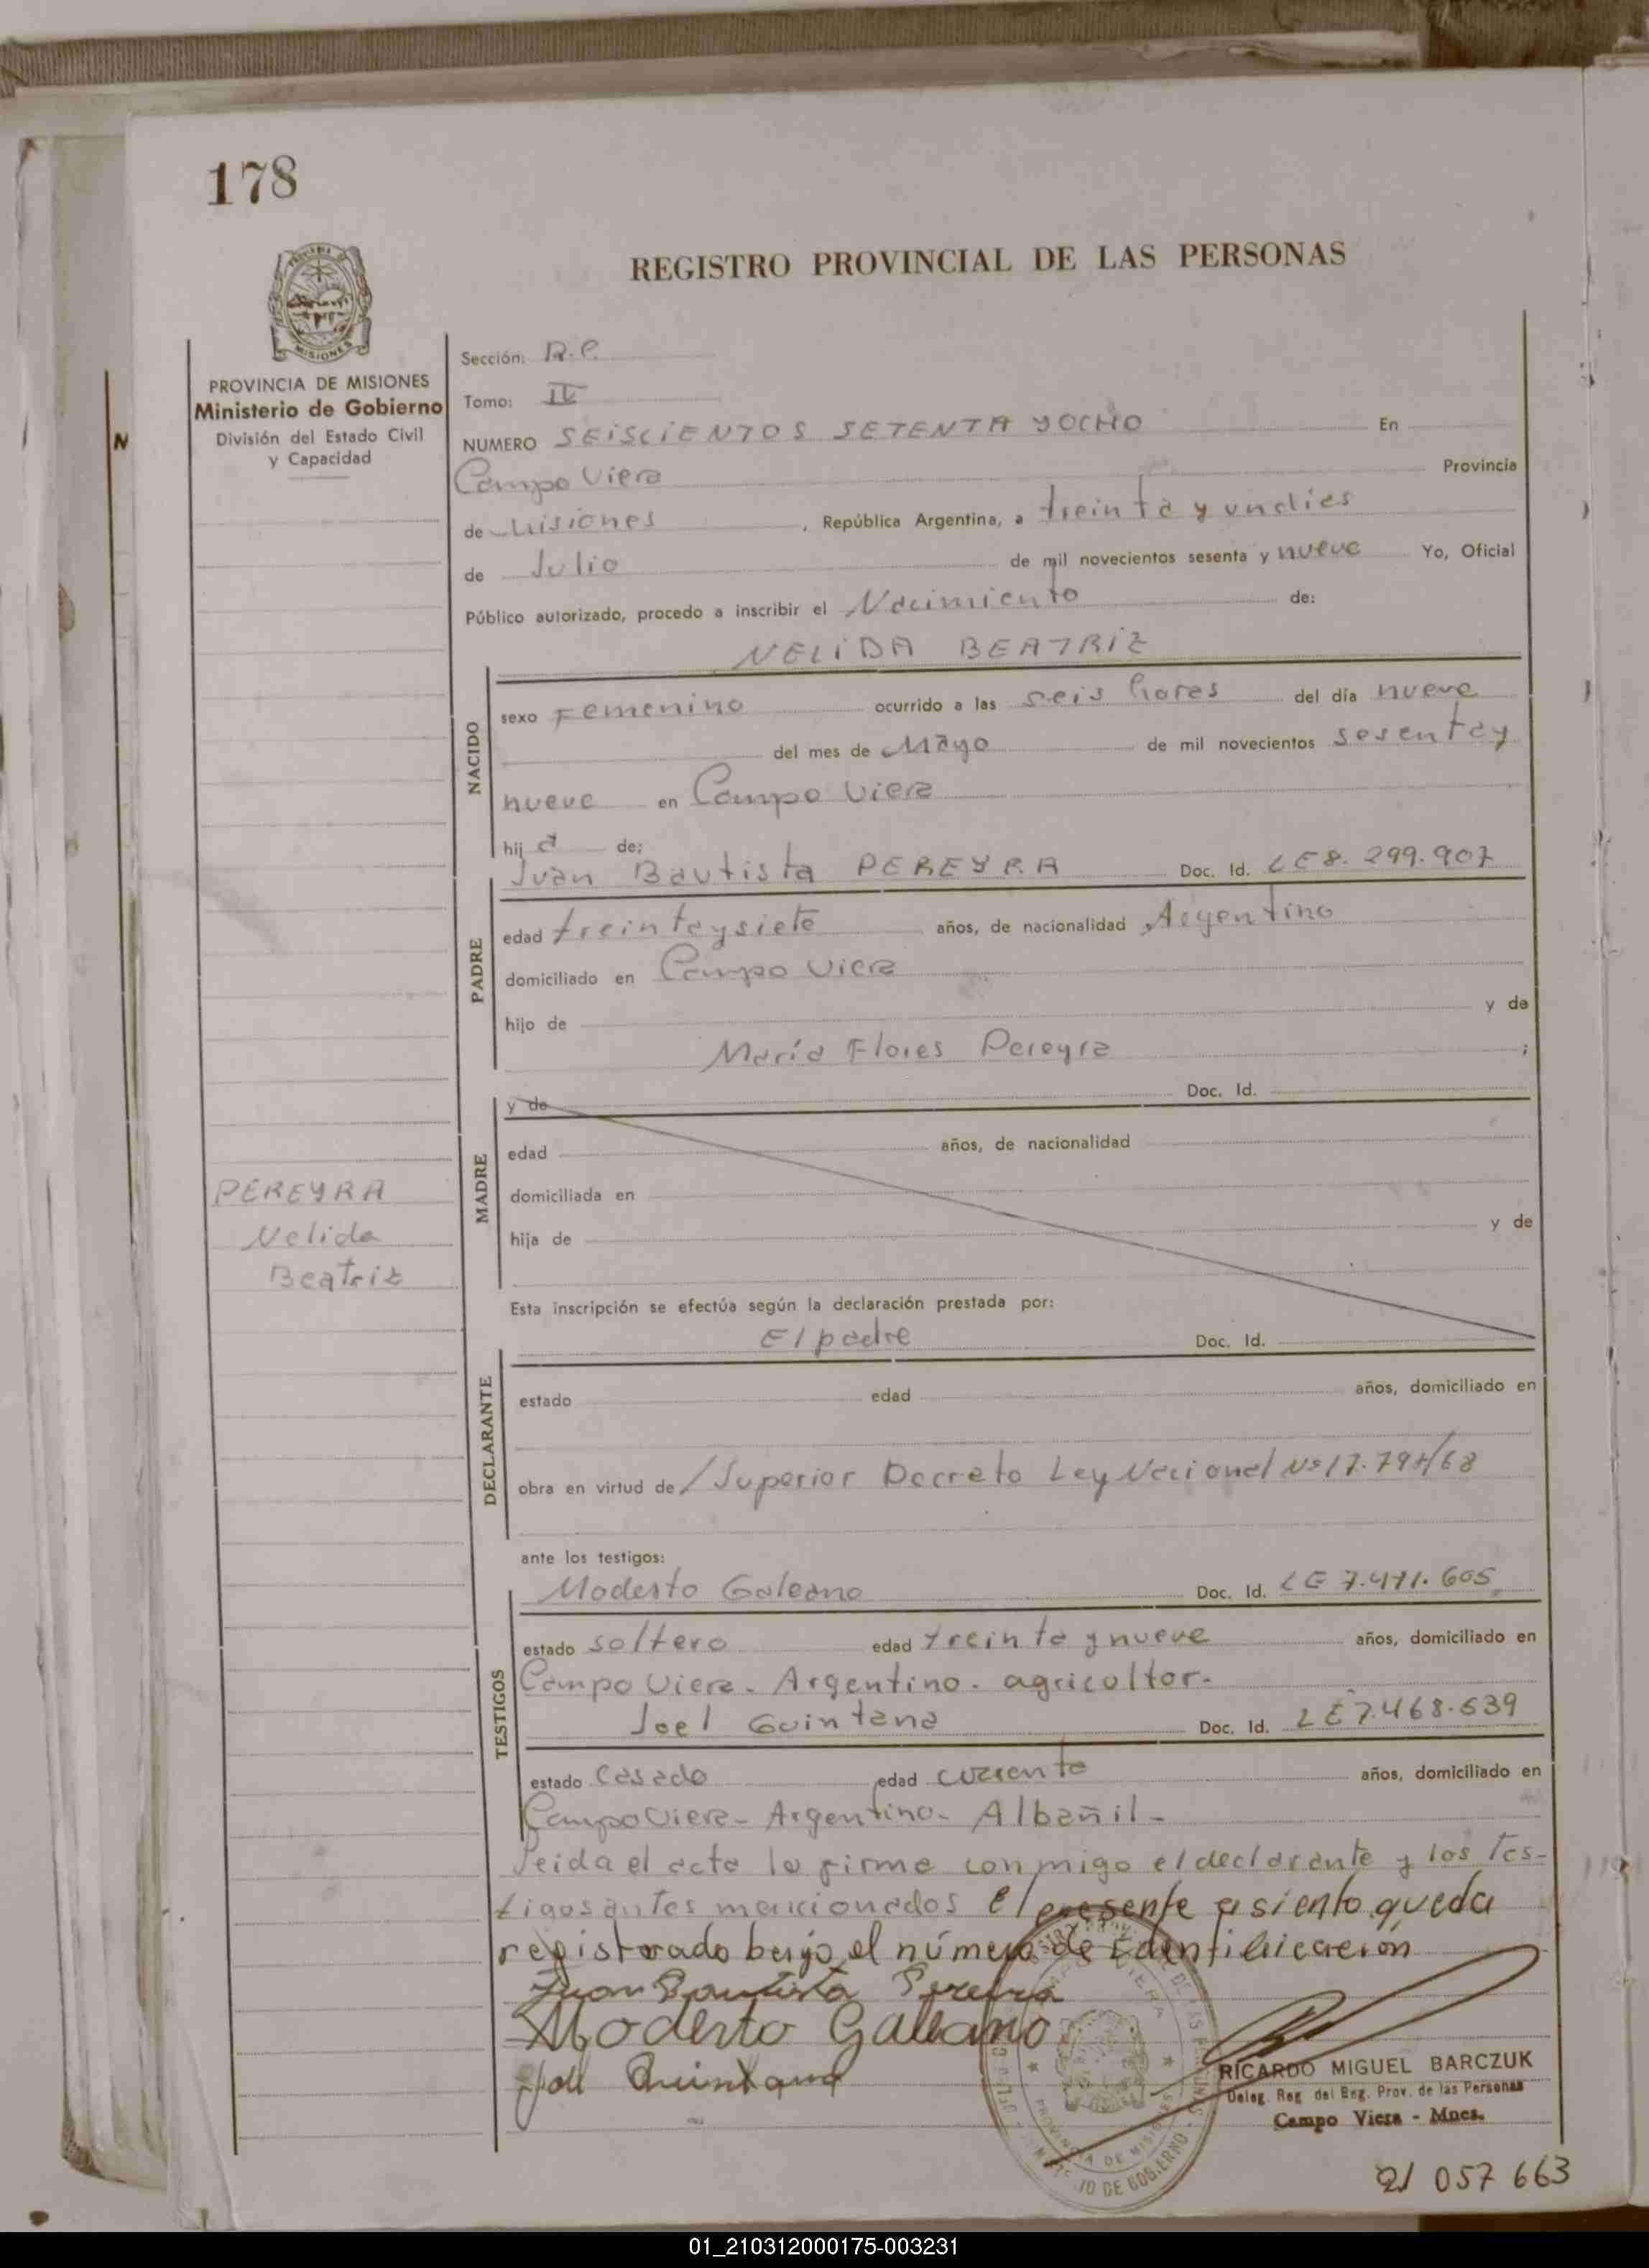 178
REGISTRO PROVINCIAL DE LAS PERSONAS
MISIONES
PROVINCIA DE MISIONES
Ministerio de Gobierno
División del Estado Civil
y Capacidad
Sección: R.P.
Tomo: IV
NUMERO SEISCIENTOS SETENTA Y OCHO En
Campo Viera Provincia
de Misiones, República Argentina, a treinta y un dies
de Julio de mil novecientos sesenta y nueve Yo, Oficial
Público autorizado, procedo a inscribir el Nacimiento de:
NELIDA BEATRIZ
NACIDO
sexo Femenino ocurrido a las seis horas del día nueve
del mes de Mayo de mil novecientos sesenta y
nueve en Campo Viera
hija de;
Juan Bautista PEREYRA Doc. Id. LE 8.299.907
PADRE
edad treinta y siete años, de nacionalidad Argentino
domiciliado en Campo Viera
hijo de y de
María Flores Pereyra ;
MADRE
y de Doc. Id.
edad años, de nacionalidad
domiciliada en
hija de y de
PEREYRA
Nelida
Beatriz
Esta inscripción se efectúa según la declaración prestada por:
El padre Doc. Id.
DECLARANTE
estado edad años, domiciliado en
obra en virtud de / Superior Decreto Ley Nacional Nº 17.794/68
ante los testigos:
Modesto Galeano Doc. Id. LE 7.471.605
TESTIGOS
estado soltero edad treinta y nueve años, domiciliado en
Campo Viera - Argentino - agricultor -
Joel Quintana Doc. Id. LE 7.468.539
estado Casado edad cuarenta años, domiciliado en
Campo Viera - Argentino - Albañil -
Leida el acta la firma conmigo el declarante y los tes-
tigos antes mencionados El presente asiento queda
registrado bajo el número de Identificación
Juan Bautista Pereira
Modesto Galeano
Joel Quintana
RICARDO MIGUEL BARCZUK
Deleg. Reg. del Reg. Prov. de las Personas
Campo Viera - Mnes.
PROVINCIA DE MISIONES
21 057 663
01_210312000175-003231